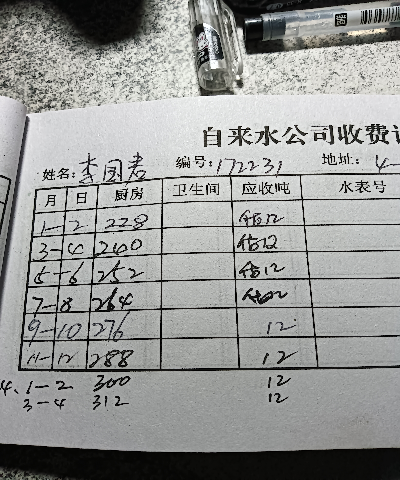 自来水公司收费
姓名：李国君 编号：172231 地址：4-
月 日 厨房 卫生间 应收吨 水表号
1-2 228 估12
3-4 240 估12
5-6 252 估12
7-8 264 估12
9-10 276 12
11-12 288 12
4、1-2 300 12
3-4 312 12